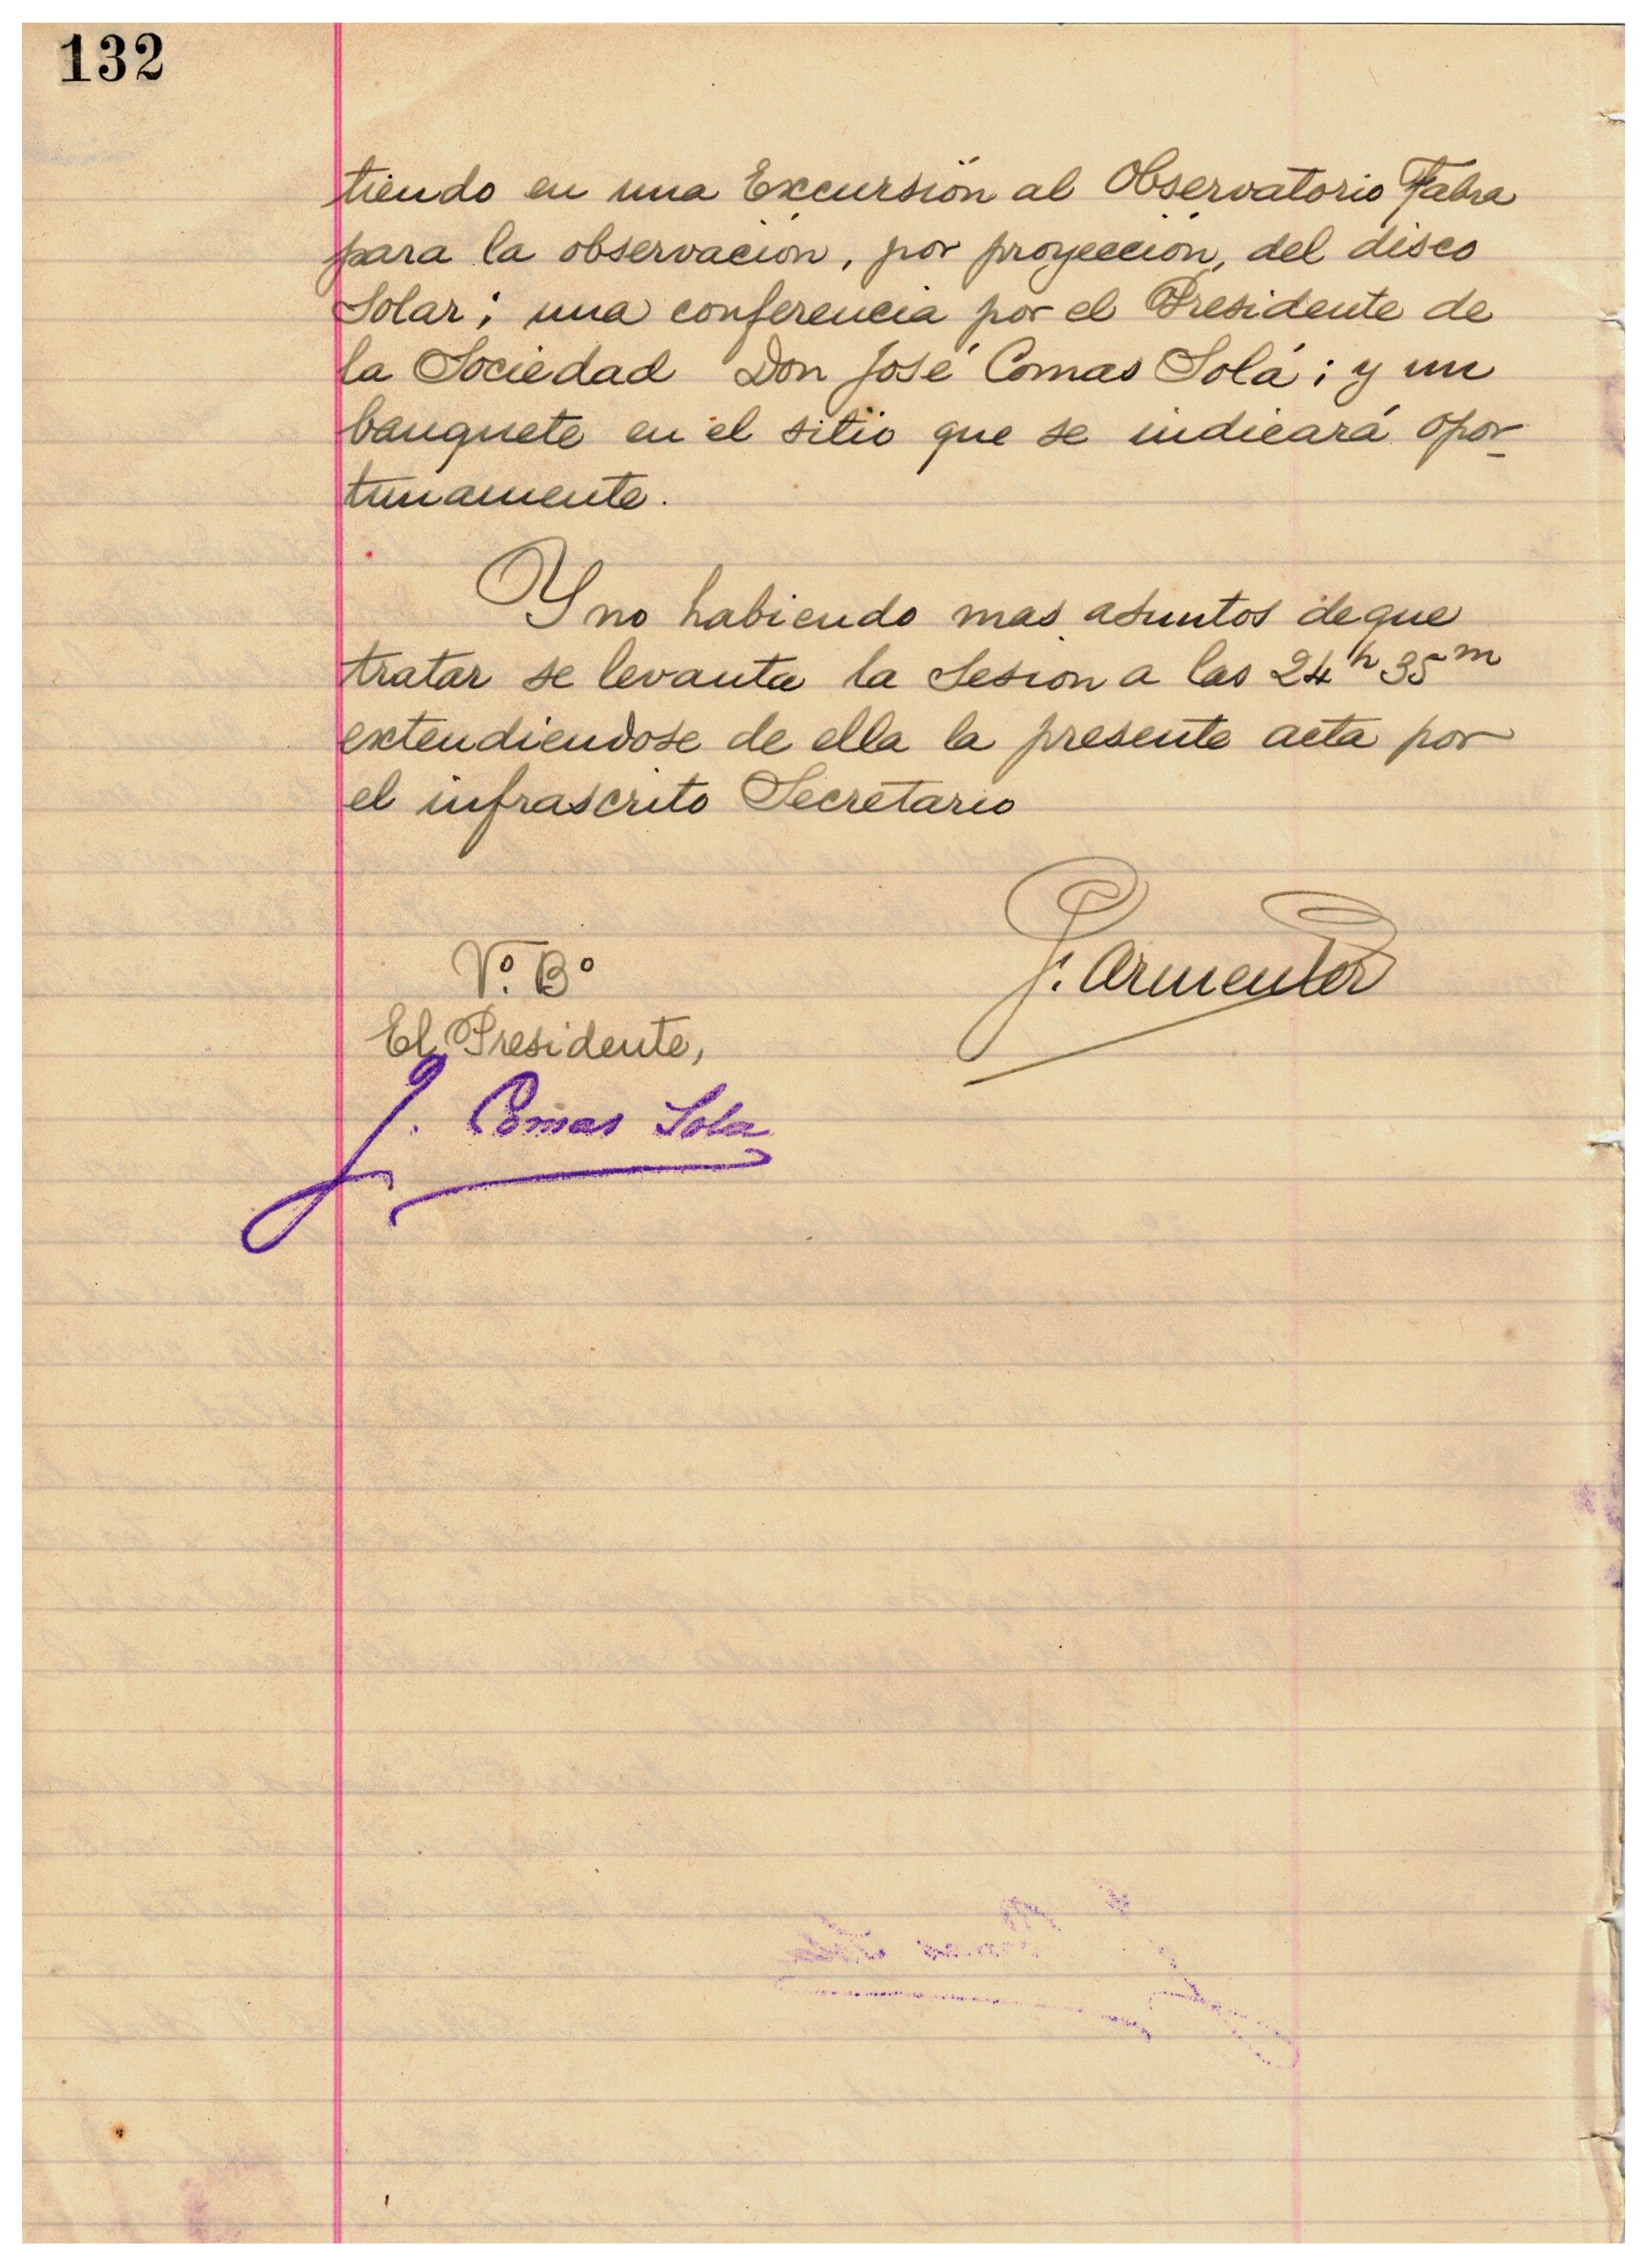 132
tiendo en una Excursión al Observatorio Fabra
para la observación, por proyección, del disco
Solar; una conferencia por el Presidente de
la Sociedad Don José Comas Solá; y un
banquete en el sitio que se indicará opor-
tunamente.
Y no habiendo mas asuntos de que
tratar se levanta la Sesion a las 24h 35m
extendiendose de ella la presente acta por
el infrascrito Secretario
P. Armenter
Vº. Bº
El Presidente,
J. Comas Sola